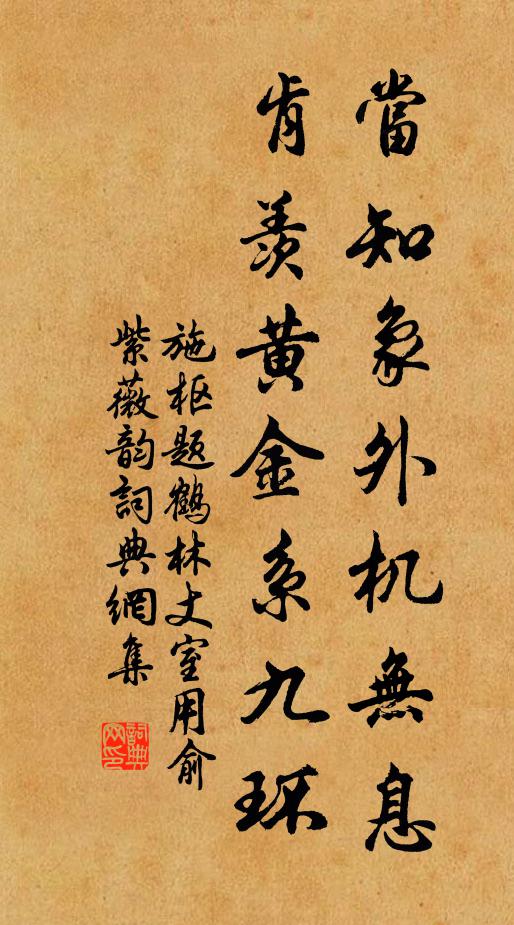 當知象外机無息
肯羨黄金系九环
施枢题鶴林丈室用俞
紫薇韵詞典網集
詞典網印